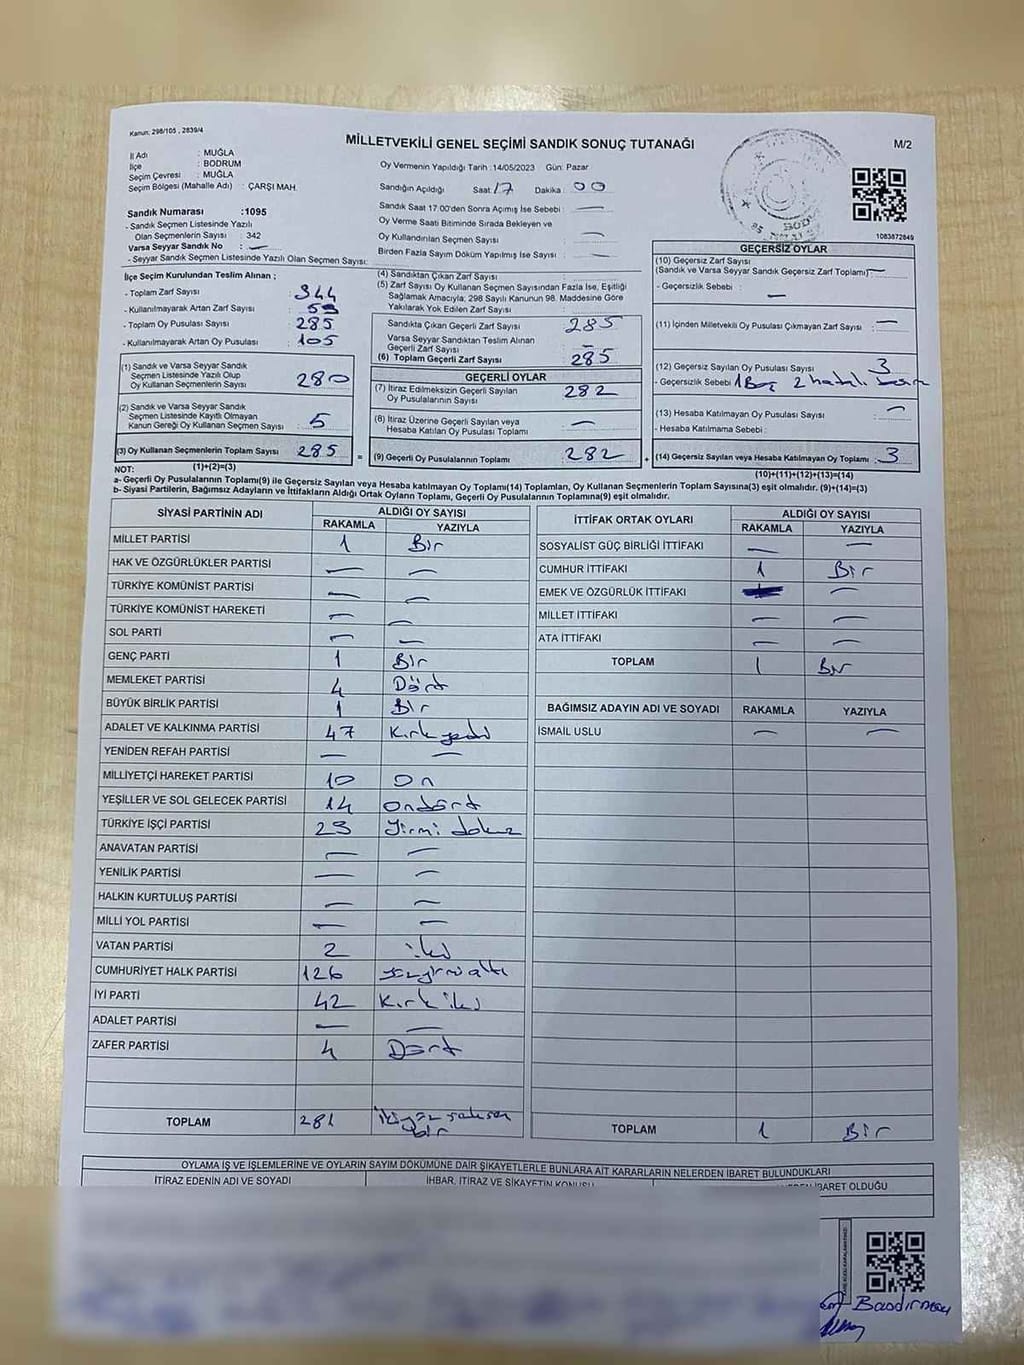 Kanun: 298/105 , 2839/4
MİLLETVEKİLİ GENEL SEÇİMİ SANDIK SONUÇ TUTANAĞI
M/2
İl Adı : MUĞLA
İlçe : BODRUM
Seçim Çevresi : MUĞLA
Seçim Bölgesi (Mahalle Adı) : ÇARŞI MAH.
Oy Vermenin Yapıldığı Tarih : 14/05/2023 Gün: Pazar
Sandığın Açıldığı Saat : 17 Dakika : 00
Sandık Saat 17:00'den Sonra Açımış İse Sebebi : —
Oy Verme Saati Bitiminde Sırada Bekleyen ve
Oy Kullandırılan Seçmen Sayısı : —
Birden Fazla Sayım Döküm Yapılmış İse Sayısı : —
BODRUM
1083872849
Sandık Numarası :1095
- Sandık Seçmen Listesinde Yazılı
Olan Seçmenlerin Sayısı : 342
Varsa Seyyar Sandık No : —
- Seyyar Sandık Seçmen Listesinde Yazılı Olan Seçmen Sayısı:
İlçe Seçim Kurulundan Teslim Alınan ;
- Toplam Zarf Sayısı : 344
- Kullanılmayarak Artan Zarf Sayısı : 59
- Toplam Oy Pusulası Sayısı : 285
- Kullanılmayarak Artan Oy Pusulası : 105
(1) Sandık ve Varsa Seyyar Sandık
Seçmen Listesinde Yazılı Olup
Oy Kullanan Seçmenlerin Sayısı : 280
(2) Sandık ve Varsa Seyyar Sandık
Seçmen Listesinde Kayıtlı Olmayan
Kanun Gereği Oy Kullanan Seçmen Sayısı : 5
(3) Oy Kullanan Seçmenlerin Toplam Sayısı : 285
(4) Sandıktan Çıkan Zarf Sayısı :
(5) Zarf Sayısı Oy Kullanan Seçmen Sayısından Fazla İse, Eşitliği
Sağlamak Amacıyla, 298 Sayılı Kanunun 98. Maddesine Göre
Yakılarak Yok Edilen Zarf Sayısı :
Sandıkta Çıkan Geçerli Zarf Sayısı : 285
Varsa Seyyar Sandıktan Teslim Alınan
Geçerli Zarf Sayısı : —
(6) Toplam Geçerli Zarf Sayısı : 285
GEÇERLİ OYLAR
(7) İtiraz Edilmeksizin Geçerli Sayılan
Oy Pusulalarının Sayısı : 282
(8) İtiraz Üzerine Geçerli Sayılan veya
Hesaba Katılan Oy Pusulası Toplamı : —
= (9) Geçerli Oy Pusulalarının Toplamı : 282 +
GEÇERSİZ OYLAR
(10) Geçersiz Zarf Sayısı
(Sandık ve Varsa Seyyar Sandık Geçersiz Zarf Toplamı): —
- Geçersizlik Sebebi : —
(11) İçinden Milletvekili Oy Pusulası Çıkmayan Zarf Sayısı : —
(12) Geçersiz Sayılan Oy Pusulası Sayısı : 3
- Geçersizlik Sebebi : 1 Boş 2 hatalı
(13) Hesaba Katılmayan Oy Pusulası Sayısı : —
- Hesaba Katılmama Sebebi :
(14) Geçersiz Sayılan veya Hesaba Katılmayan Oy Toplamı : 3
NOT: (1)+(2)=(3)
(10)+(11)+(12)+(13)=(14)
a- Geçerli Oy Pusulalarının Toplamı(9) ile Geçersiz Sayılan veya Hesaba katılmayan Oy Toplamı(14) Toplamları, Oy Kullanan Seçmenlerin Toplam Sayısına(3) eşit olmalıdır. (9)+(14)=(3)
b- Siyasi Partilerin, Bağımsız Adayların ve İttifakların Aldığı Ortak Oyların Toplamı, Geçerli Oy Pusulalarının Toplamına(9) eşit olmalıdır.
SİYASİ PARTİNİN ADI ALDIĞI OY SAYISI
RAKAMLA YAZIYLA
MİLLET PARTİSİ 1 Bir
HAK VE ÖZGÜRLÜKLER PARTİSİ — —
TÜRKİYE KOMÜNİST PARTİSİ — —
TÜRKİYE KOMÜNİST HAREKETİ — —
SOL PARTİ — —
GENÇ PARTİ 1 Bir
MEMLEKET PARTİSİ 4 Dört
BÜYÜK BİRLİK PARTİSİ 1 Bir
ADALET VE KALKINMA PARTİSİ 47 Kırk yedi
YENİDEN REFAH PARTİSİ — —
MİLLİYETÇİ HAREKET PARTİSİ 10 On
YEŞİLLER VE SOL GELECEK PARTİSİ 14 ondört
TÜRKİYE İŞÇİ PARTİSİ 29 Yirmi dokuz
ANAVATAN PARTİSİ — —
YENİLİK PARTİSİ — —
HALKIN KURTULUŞ PARTİSİ — —
MİLLİ YOL PARTİSİ — —
VATAN PARTİSİ 2 iki
CUMHURİYET HALK PARTİSİ 126 yüzyirmialtı
İYİ PARTİ 42 Kırk iki
ADALET PARTİSİ — —
ZAFER PARTİSİ 4 Dört
TOPLAM 281 ikiyüz seksen
bir
İTTİFAK ORTAK OYLARI ALDIĞI OY SAYISI
RAKAMLA YAZIYLA
SOSYALİST GÜÇ BİRLİĞİ İTTİFAKI — —
CUMHUR İTTİFAKI 1 Bir
EMEK VE ÖZGÜRLÜK İTTİFAKI —
MİLLET İTTİFAKI — —
ATA İTTİFAKI — —
TOPLAM 1 Bir
BAĞIMSIZ ADAYIN ADI VE SOYADI RAKAMLA YAZIYLA
İSMAİL USLU — —
TOPLAM 1 Bir
OYLAMA İŞ VE İŞLEMLERİNE VE OYLARIN SAYIM DÖKÜMÜNE DAİR ŞİKAYETLERLE BUNLARA AİT KARARLARIN NELERDEN İBARET BULUNDUKLARI
İTİRAZ EDENİN ADI VE SOYADI İHBAR, İTİRAZ VE ŞİKAYETİN KONUSU İBARET OLDUĞU